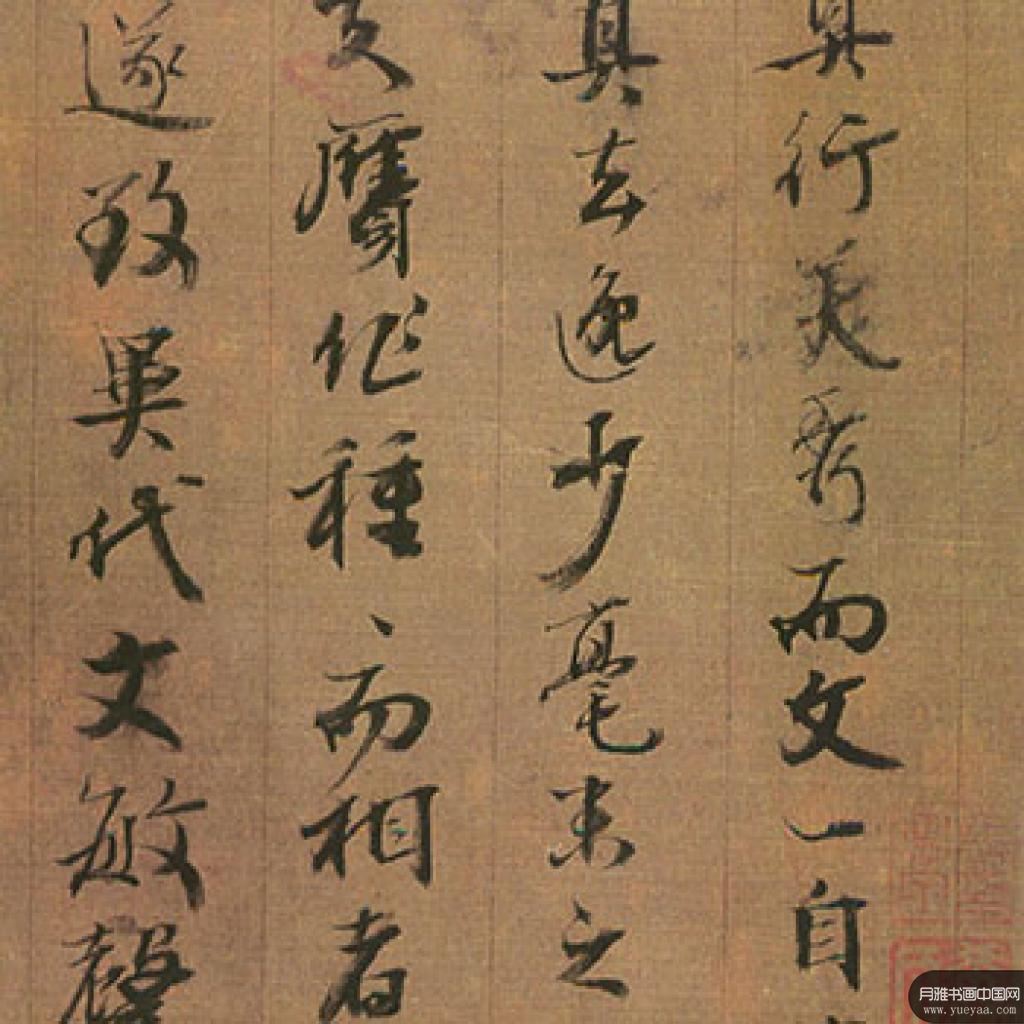 行美秀而文一自
真去逸少毫末之
贋作種〻而相者
遂致異代文敏聲
月雅书画中国网
www.yueyaa.com